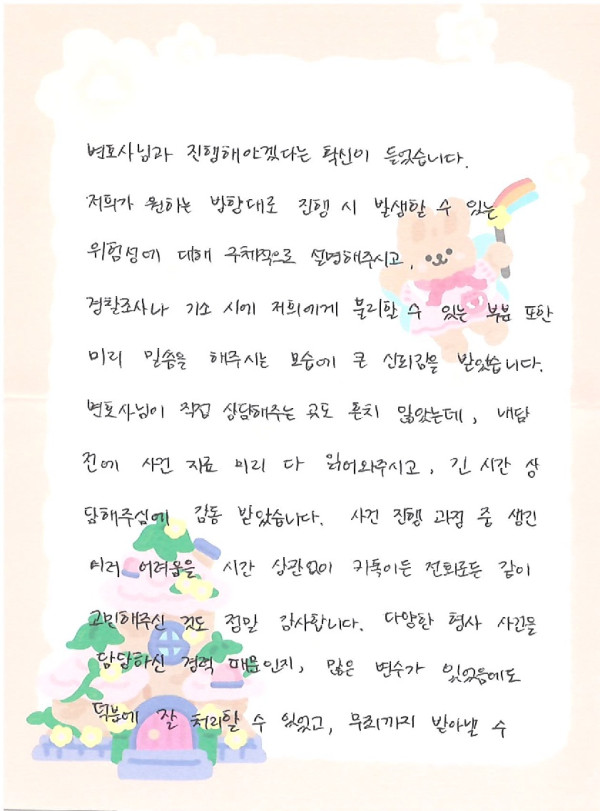 변호사님과 진행해야겠다는 확신이 들었습니다.
저희가 원하는 방향대로 진행 시 발생할 수 있는
위험성에 대해 구체적으로 설명해주시고,
경찰조사나 기소 시에 저희에게 불리할 수 있는 부분 또한
미리 말씀을 해주시는 모습에 큰 신뢰감을 받았습니다.
변호사님이 직접 상담해주는 곳도 흔치 않았는데, 내담
전에 사건 자료 미리 다 읽어와주시고, 긴 시간 상
담해주심에 감동 받았습니다. 사건 진행 과정 중 생긴
여러 어려움을 시간 상관없이 카톡이든 전화로든 같이
고민해주신 것도 정말 감사합니다. 다양한 형사 사건을
담당하신 경력 때문인지, 많은 변수가 있었음에도
덕분에 잘 처리할 수 있었고, 무죄까지 받아낼 수